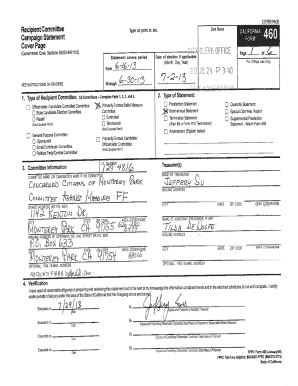 COVER PAGE
Recipient Committee
Campaign Statement
Cover Page
(Government Code Sections 84200-84216.5)
Type or print in ink.
Date Stamp
CALIFORNIA
FORM 460
CLERK OFFICE
Page 1 of 6
For Official Use Only
Statement covers period
from 6-16-13
through 6-30-13
Date of election if applicable:
(Month, Day, Year)
7-2-13
SEE INSTRUCTIONS ON REVERSE
1. Type of Recipient Committee: All Committees – Complete Parts 1, 2, 3, and 4.
Officeholder, Candidate Controlled Committee
State Candidate Election Committee
Recall
(Also Complete Part 5)
General Purpose Committee
Sponsored
Small Contributor Committee
Political Party/Central Committee
Primarily Formed Ballot Measure
Committee
Controlled
Sponsored
(Also Complete Part 6)
Primarily Formed Candidate/
Officeholder Committee
(Also Complete Part 7)
2. Type of Statement:
Preelection Statement
Semi-annual Statement
Termination Statement
(Also file a Form 410 Termination)
Amendment (Explain below)
Quarterly Statement
Special Odd-Year Report
Supplemental Preelection
Statement - Attach Form 495
3. Committee Information
I.D. NUMBER
COMMITTEE NAME (OR CANDIDATE'S NAME IF NO COMMITTEE)
CONCERNED CITIZENS OF MONTEREY PARK
COMMITTEE AGAINST MEASURE FF
STREET ADDRESS (NO P.O. BOX)
1142 KENTON DR.
CITY STATE ZIP CODE AREA CODE/PHONE
MONTEREY PARK CA 91755
P.O. BOX 633
CITY STATE ZIP CODE AREA CODE/PHONE
MONTEREY PARK CA 91754
OPTIONAL: FAX / E-MAIL ADDRESS
Treasurer(s)
NAME OF TREASURER
JEFFERY SU
MAILING ADDRESS
CITY STATE ZIP CODE AREA CODE/PHONE
NAME OF ASSISTANT TREASURER, IF ANY
TILDA DEWOLFE
MAILING ADDRESS
CITY STATE ZIP CODE AREA CODE/PHONE
OPTIONAL: FAX / E-MAIL ADDRESS
4. Verification
I have used all reasonable diligence in preparing and reviewing this statement and to the best of my knowledge the information contained herein and in the attached schedules is true and complete. I certify
under penalty of perjury under the laws of the State of California that the foregoing is true and correct.
Executed on 7/24/13
Date
By
Signature of Treasurer or Assistant Treasurer
Executed on
Date
By
Executed on
Date
By
Executed on
Date
By
FPPC Form 460 (January/05)
State of California